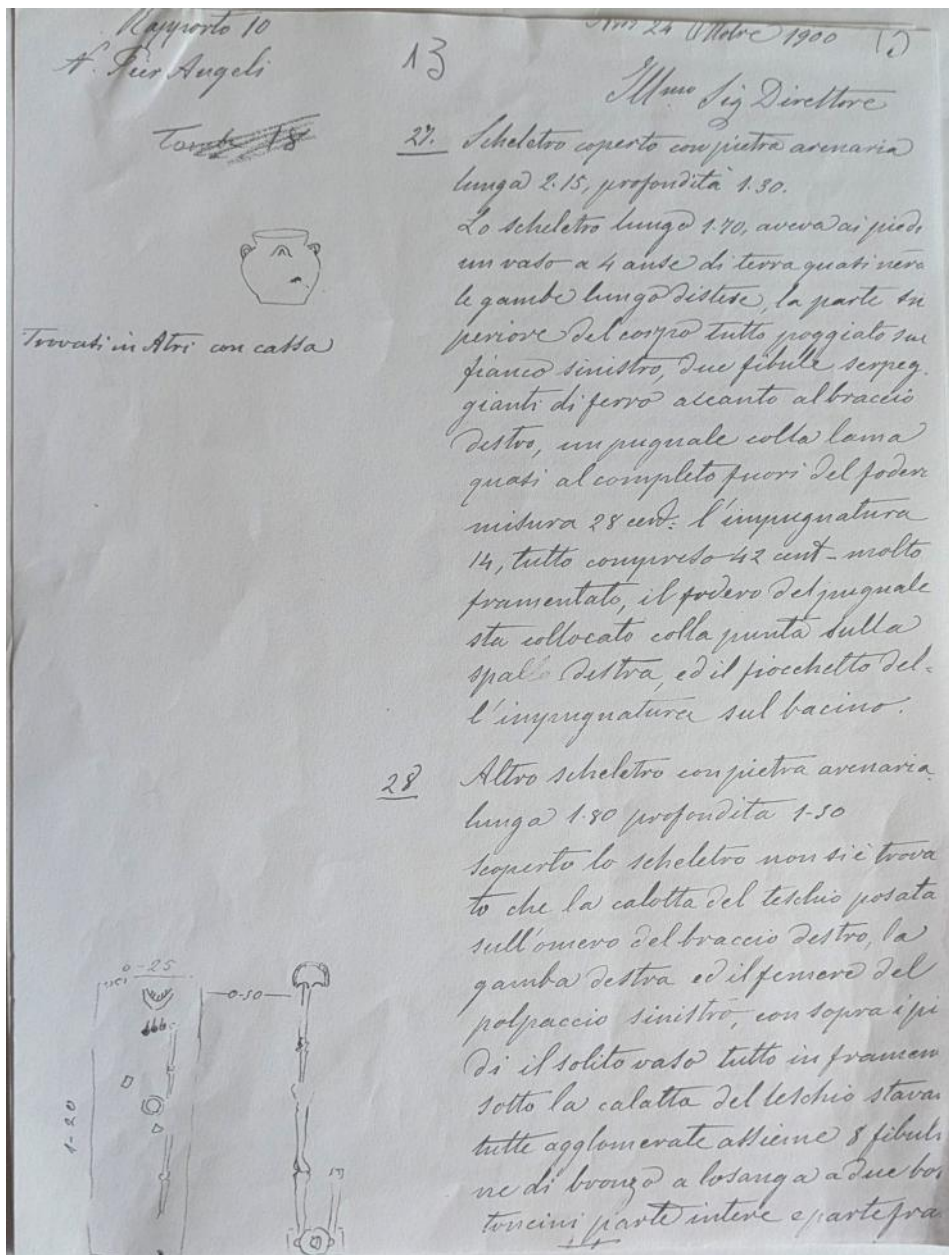 Rapporto 10
N. Pier Angeli
13
24 Ottobre 1900
Ill.mo Sig Direttore
Tomba 18
27. Scheletro coperto con pietra arenaria
lunga 2.15, profondità 1.30.
Lo scheletro lungo 1.70, aveva ai piedi
un vaso a 4 anse di terra quasi nera
le gambe lungo distese, la parte su
periore del corpo tutto poggiato sul
fianco sinistro, due fibule serpeg.
gianti di ferro accanto al braccio
destro, un pugnale colla lama
quasi al completo fuori del fodero
misura 28 cent: l'impugnatura
14, tutto compreso 42 cent - molto
framentato, il fodero del pugnale
sta collocato colla punta sulla
spalla destra, ed il fiocchetto del=
l'impugnatura sul bacino.
Trovasi in Atri con cassa
28 Altro scheletro con pietra arenaria
lunga 1.80 profondita 1-30
scoperto lo scheletro non si è trova
to che la calotta del teschio posata
sull'omero del braccio destro, la
gamba destra ed il femore del
polpaccio sinistro, con sopra i pi
di il solito vaso tutto in framen
sotto la calatta del teschio stavan
tutte agglomerate assieme 8 fibuli
ne di bronzo a losanga a due bot
toncini parte intere e parte fra
0-25
0-50
1-20